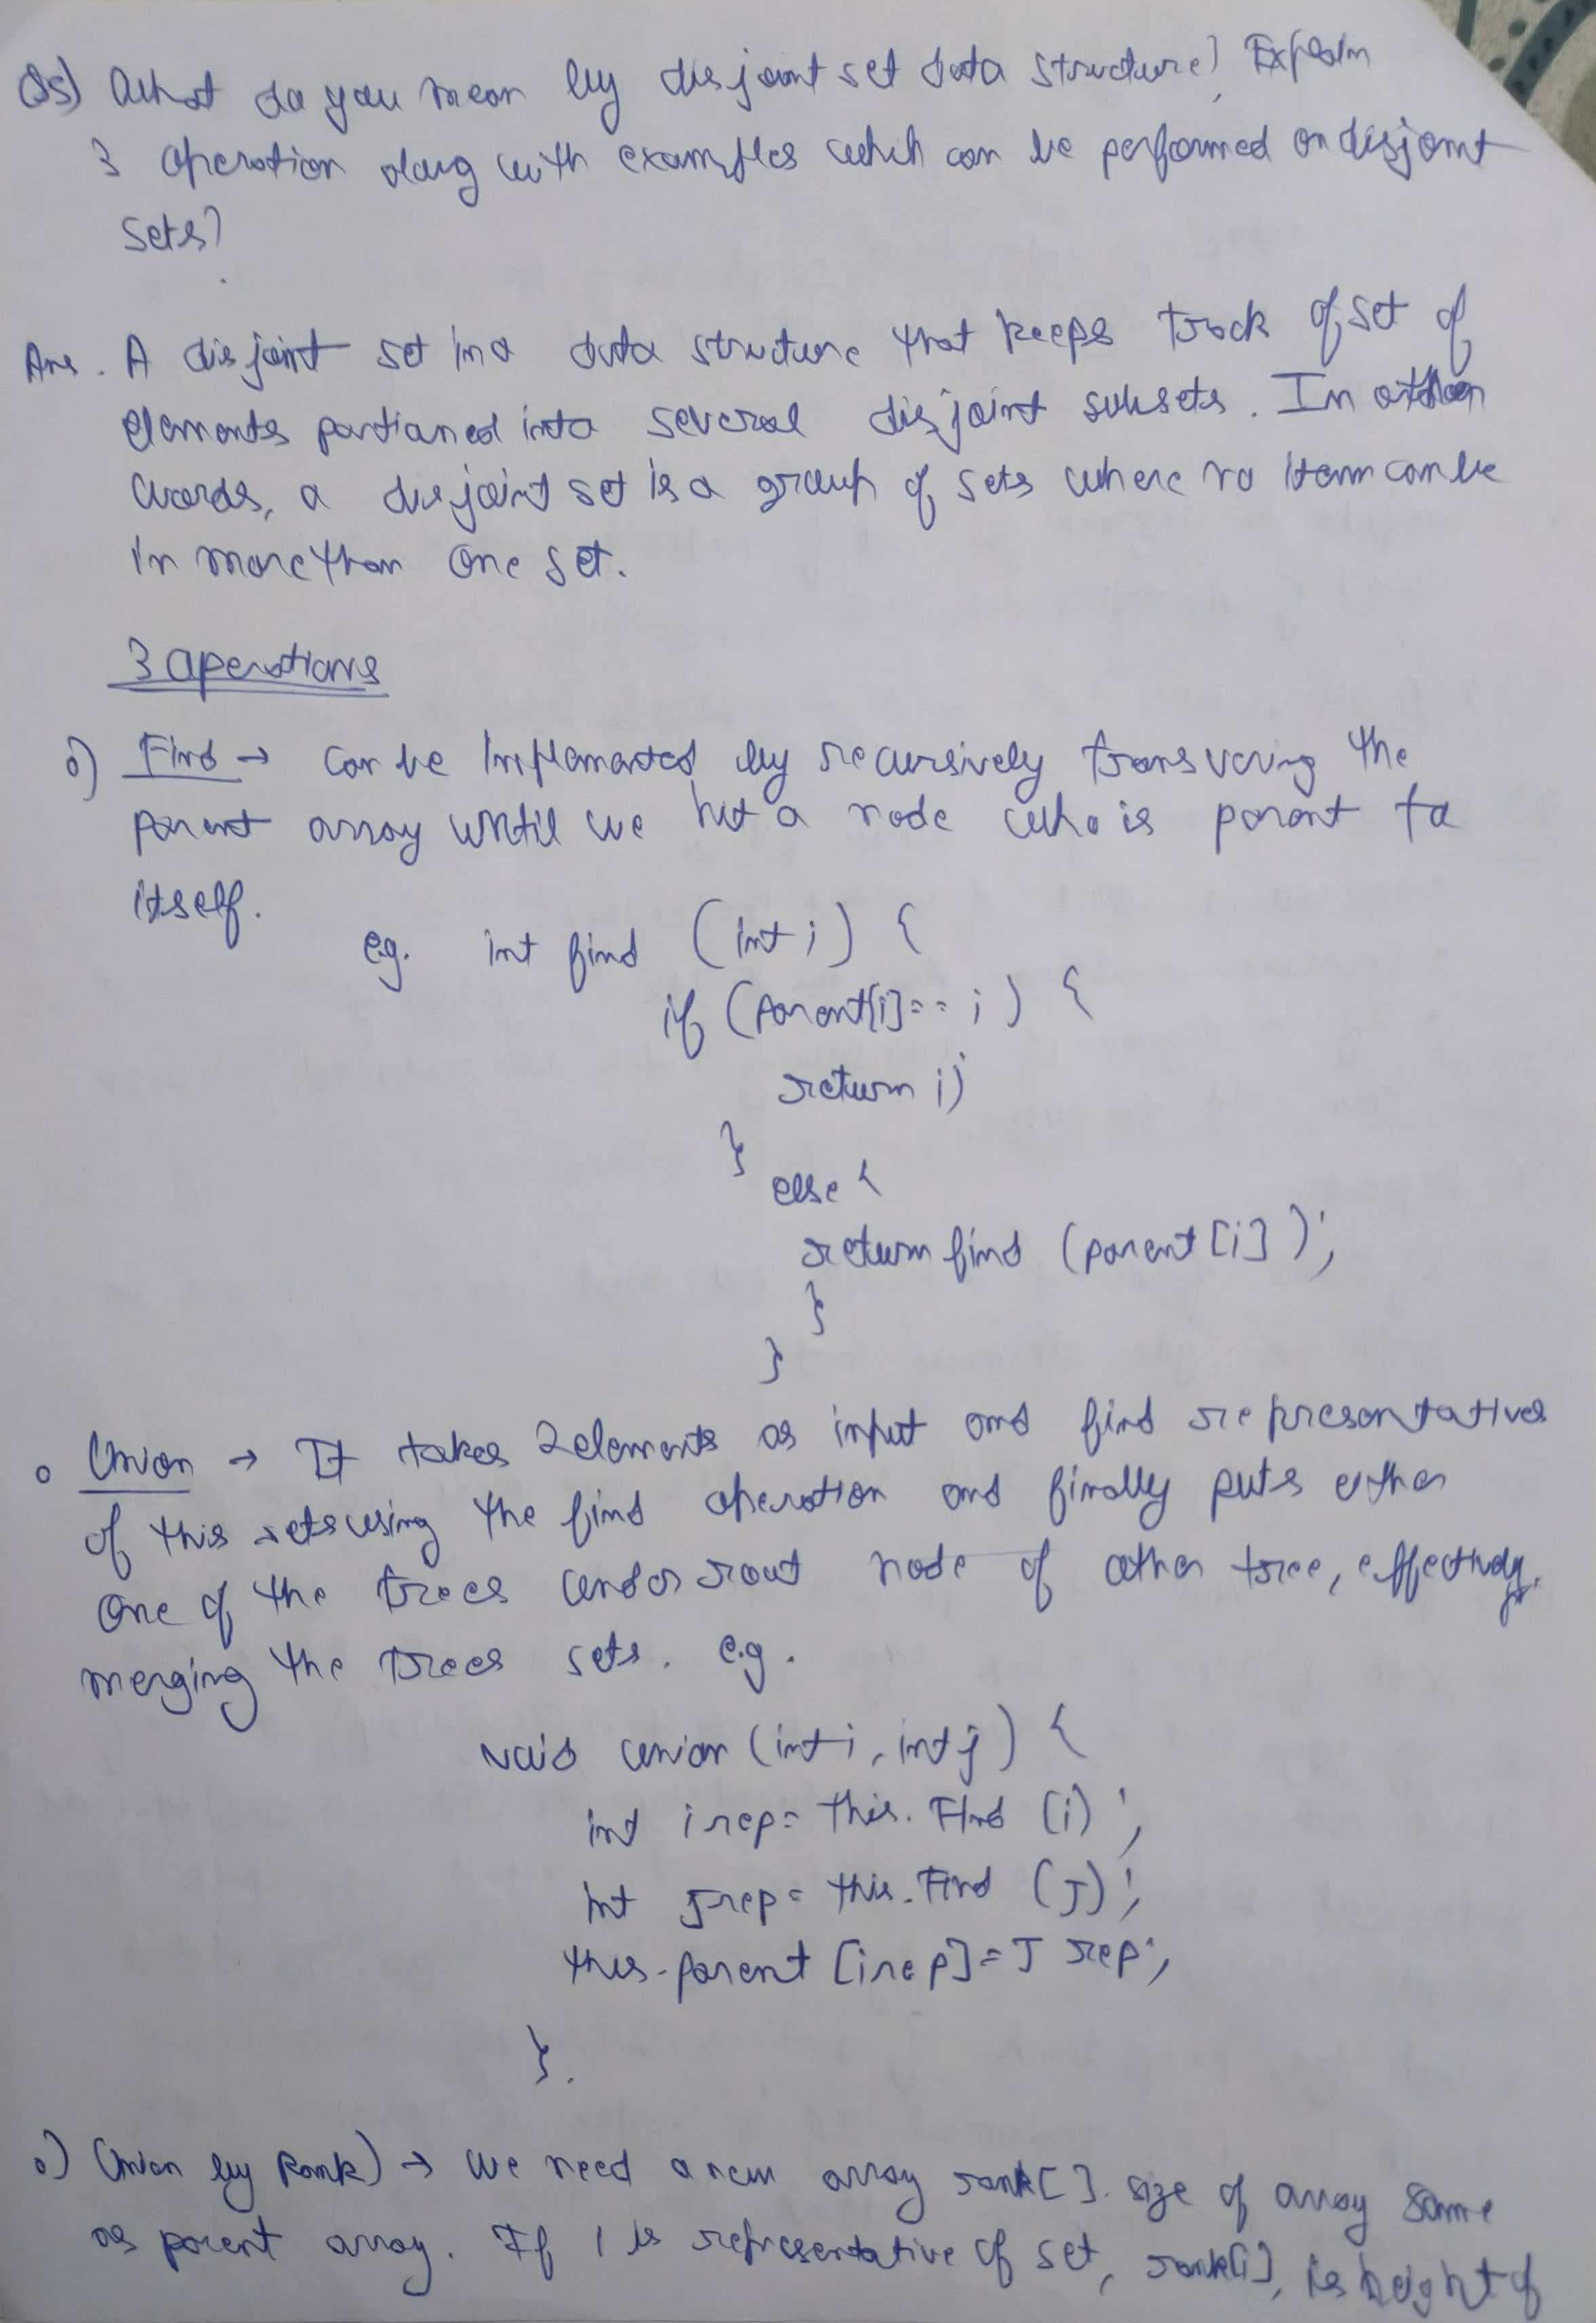 Q5) What do you mean by disjoint set data structure? Explain
3 operation along with examples which can be performed on disjoint
sets?
Ans. A disjoint set in a data structure that keeps track of set of
elements partianed into several disjoint subsets. In other
words, a disjoint set is a group of sets where no item can be
in more than one set.
3 operations
o) Find → can be implemented by recursively transvering the
parent array until we hit a node who is parent to
itself.
e.g. int find (int i) {
if (parent[i]== i) {
return i;
}
else {
return find (parent [i]);
}
}
o Union → It takes 2 elements as input and find representatives
of this sets using the find operation and finally puts either
one of the trees under root node of other tree, effectively
merging the trees sets. e.g.
void union (int i, int j) {
int irep= this. Find (i);
int Jrep= this. Find (J);
this. parent [irep]= J rep;
}.
o) Union by Rank) → We need a new array rank[]. size of array same
as parent array. If i is representative of set, rank[i], is height of